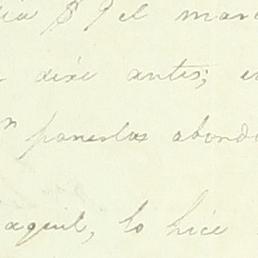 el mar
dixe antes; e
ponerlas abordo
aquil, lo hice